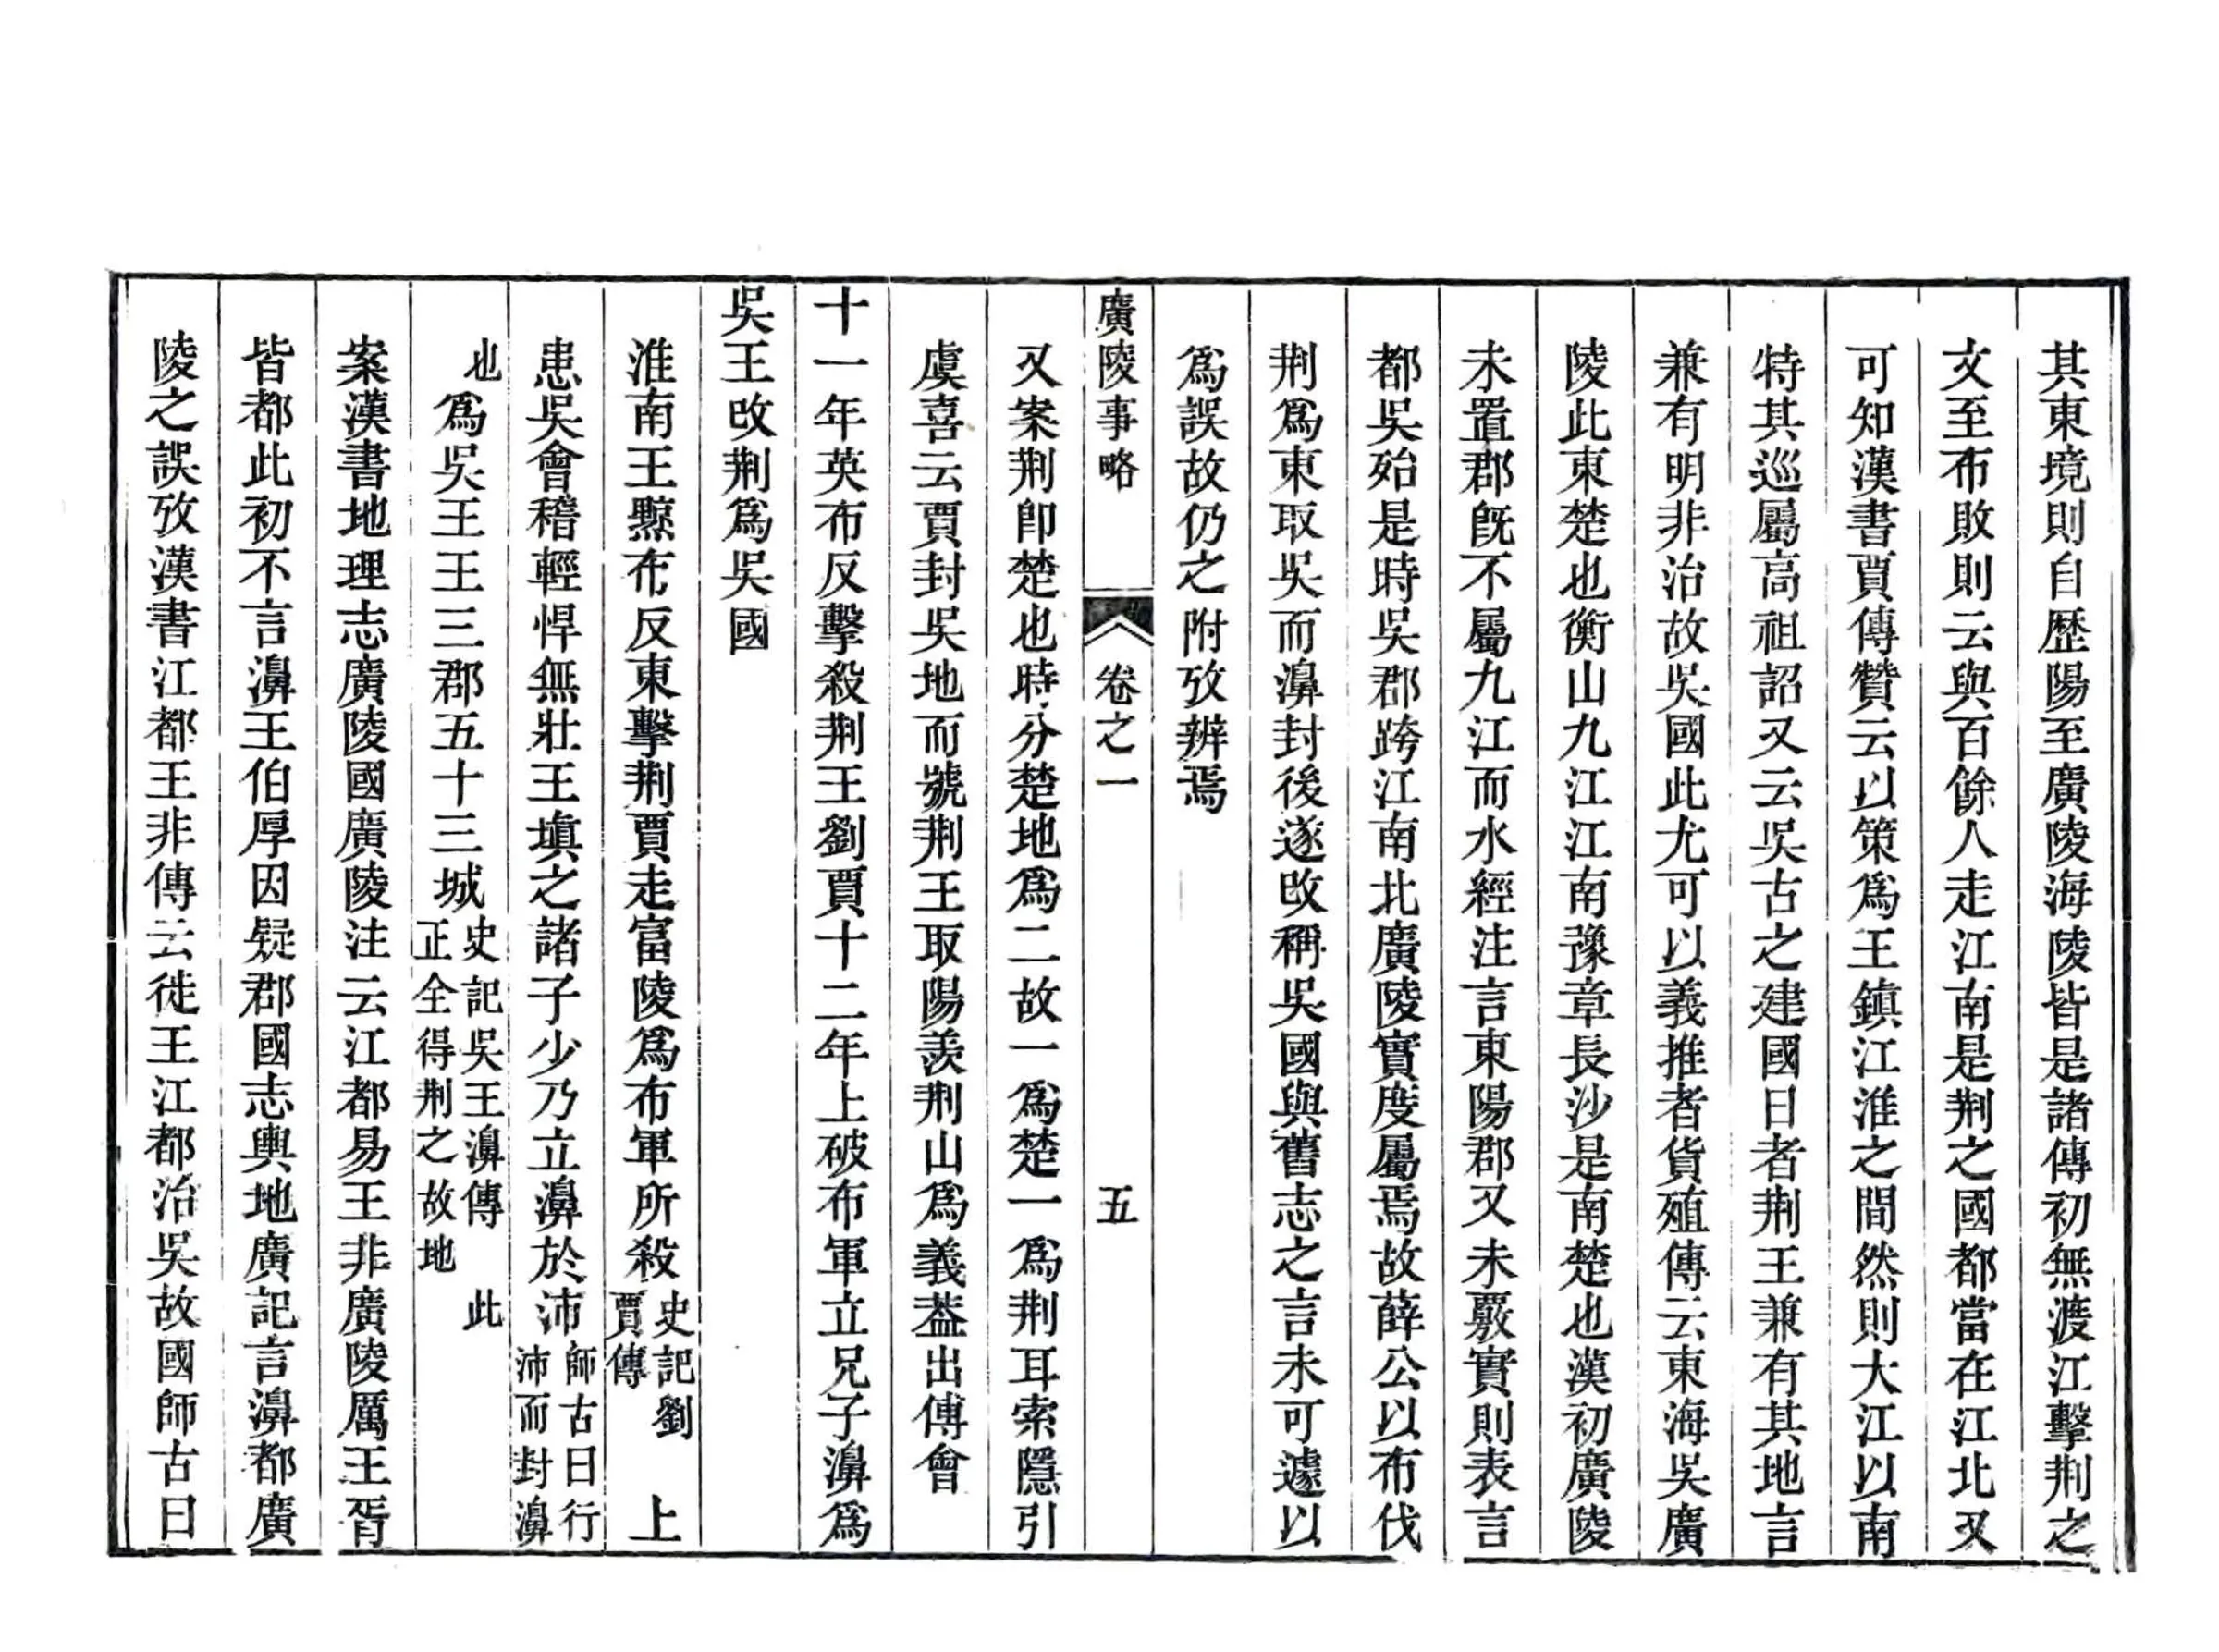 其東境則自歷陽至廣陵海陵皆是諸傳初無渡江擊荆之
文至布敗則云與百餘人走江南是荆之國都當在江北又
可知漢書賈傳贊云以策爲王鎮江淮之間然則大江以南
特其巡屬高祖詔又云吳古之建國日者荆王兼有其地言
兼有明非治故吳國此尤可以義推者貨殖傳云東海吳廣
陵此東楚也衡山九江江南豫章長沙是南楚也漢初廣陵
未置郡旣不屬九江而水經注言東陽郡又未覈實則表言
都吳殆是時吳郡跨江南北廣陵實度屬焉故薛公以布伐
荆爲東取吳而濞封後遂改稱吳國與舊志之言未可遽以
爲誤故仍之附攷辨焉
廣陵事略 卷之一 五
又案荆卽楚也時分楚地爲二故一爲楚一爲荆耳索隱引
虞喜云賈封吳地而號荆王取陽羨荆山爲義葢出傅會
十一年英布反擊殺荆王劉賈十二年上破布軍立兄子濞爲
吳王改荆爲吳國
淮南王黥布反東擊荆賈走富陵爲布軍所殺史記劉賈傳 上
患吳會稽輕悍無壯王塡之諸子少乃立濞於沛師古曰行沛而封濞
也爲吳王王三郡五十三城史記吳王濞傳 此正全得荆之故地
案漢書地理志廣陵國廣陵注云江都易王非廣陵厲王胥
皆都此初不言濞王伯厚因疑郡國志輿地廣記言濞都廣
陵之誤攷漢書江都王非傳云徙王江都治吳故國師古曰